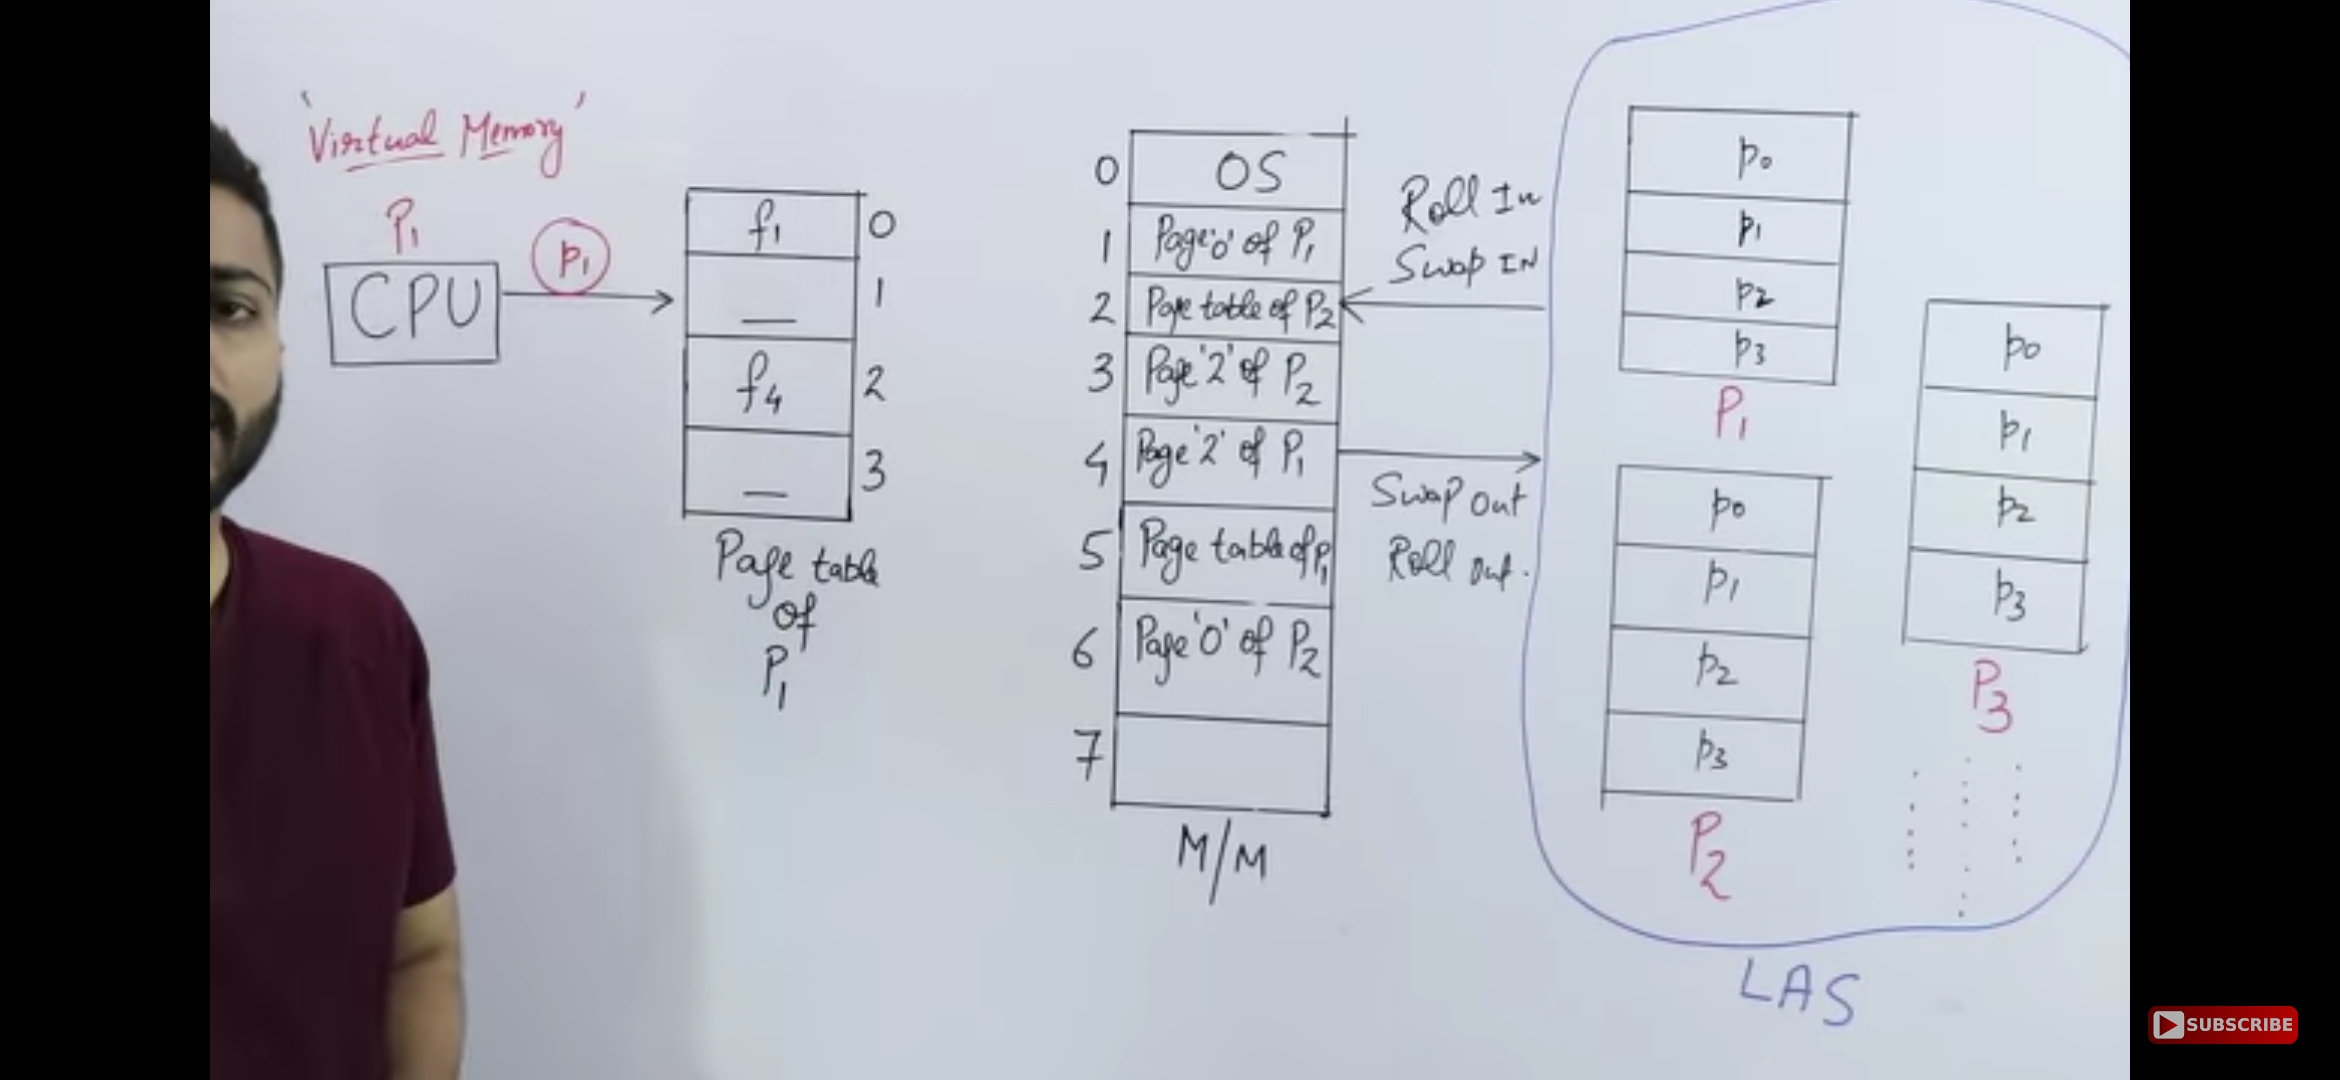 'Virtual Memory'
P1
CPU
p1
f1 0
— 1
f4 2
— 3
Page table
of
P1
0 OS
1 Page '0' of P1
2 Page table of P2
3 Page '2' of P2
4 Page '2' of P1
5 Page table of P1
6 Page '0' of P2
7
M/M
Roll In
Swap IN
Swap Out
Roll Out.
p0
p1
p2
p3
P1
p0
p1
p2
p3
P2
p0
p1
p2
p3
P3
LAS
SUBSCRIBE